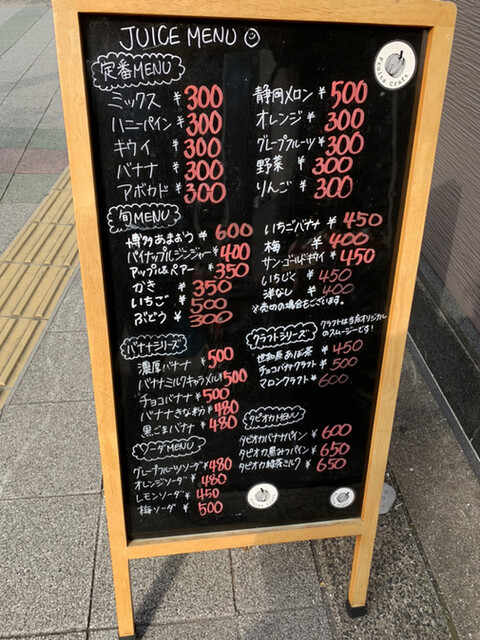 JUICE MENU
Fruits Craft
定番MENU
ミックス ¥300
ハニーパイン ¥300
キウイ ¥300
バナナ ¥300
アボカド ¥300
静岡メロン ¥500
オレンジ ¥300
グレープフルーツ ¥300
野菜 ¥300
りんご ¥300
旬MENU
博多あまおう ¥600
パイナップルジンジャー ¥400
アップル&ペアー ¥350
かき ¥350
いちご ¥500
ぶどう ¥300
いちごバナナ ¥450
梅 ¥400
サン・ゴールドキウイ ¥450
いちじく ¥450
洋なし ¥400
※売切の場合もございます。
バナナシリーズ
濃厚バナナ ¥500
バナナミルクキャラメル ¥500
チョコバナナ ¥500
バナナきな粉 ¥480
黒ごまバナナ ¥480
クラフトシリーズ
クラフトは当店オリジナル
のスムージーです!
¥450
チョコバナナクラフト ¥500
マロンクラフト ¥600
ソーダMENU
グレープフルーツソーダ ¥480
オレンジソーダ ¥480
レモンソーダ ¥450
梅ソーダ ¥500
タピオカMENU
タピオカバナナパイン ¥600
タピオカ黒みつパイン ¥650
タピオカ緑茶ミルク ¥650